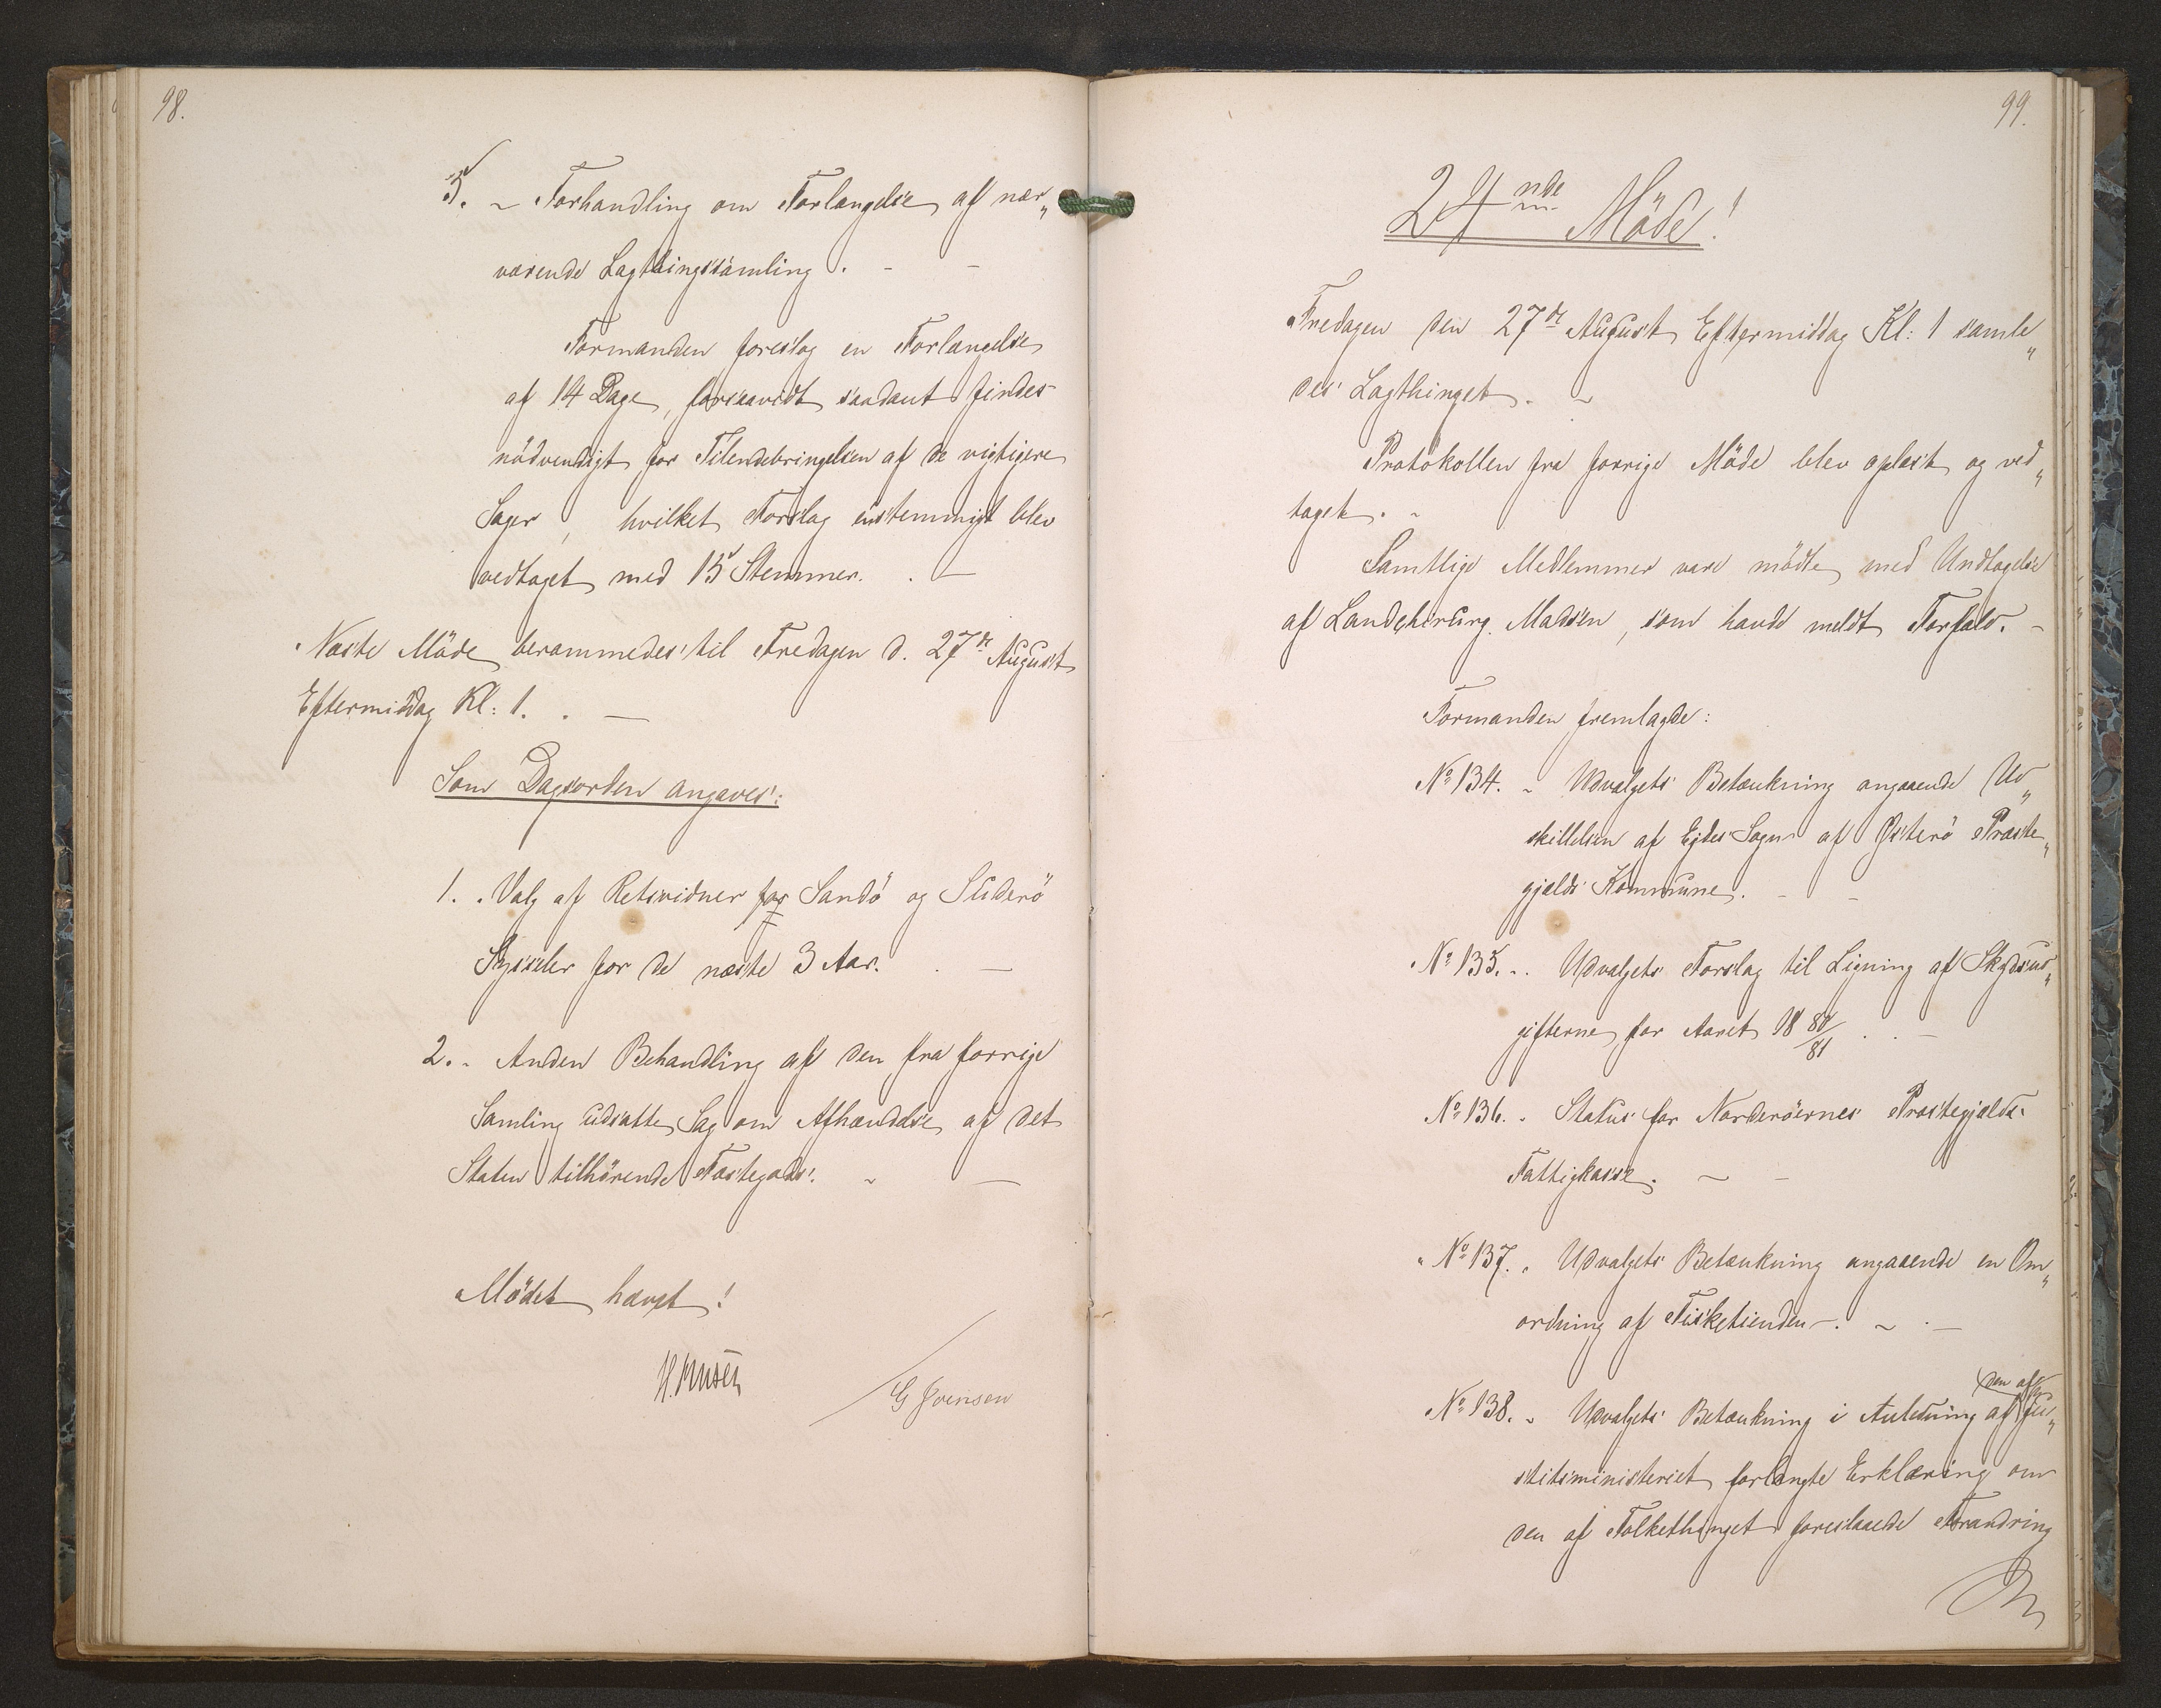 98.
5. - Forhandling om Forlængelse af nær„
værende Lagthingssamling. - -
Formanden foreslog en Forlængelse
af 14 Dage, forsaavidt saadant findes
nödvendigt for Tilendebringelsen af de vigtigere
Sager, hvilket Forslag enstemmigt blev
vedtaget med 15 Stemmer. . -
Næste Möde berammedes til Fredagen d. 27de August
Eftermiddag Kl: 1. . -
Som Dagsorden angaves:
1. . Valg af Retsvidner for Sandö og Suderö
Sysseler for de næste 3 Aar. . -
2. - Anden Behandling af den fra forrige
Samling udsatte Sag om Afhændelse af det
Staten tilhörende Fæstegods. - -
Mödet hævet!
G Svensen
99.
24nde Möde!
Fredagen den 27de August Eftermiddag Kl: 1 samle„
des Lagthinget. -
Protokollen fra forrige Möde blev oplæst og ved„
taget. -
Samtlige Medlemmer vare mödte med Undtagelse
af Landchirurg. Madsen, som havde meldt Forfald. -
Formanden fremlagde:
No 134. - Udvalgets Betænkning angaaende Ud„
skillelsen af Ejdes Sogn af Österö Præste„
gjelds Kommune. - -
No 135. - . Udvalgets Forslag til Ligning af Skydsud„
gifterne for Aaret 1880/81 . . -
No 136. . Status for Norderöernes Præstegjælds
Fattigkasse. - -
No 137. . Udvalgets Betænkning angaaende en Om„
ordning af Fisketienden -. - . -
No 138. - Udvalgets Betænkning i Anledning af den af Ju„
stitsministeriet forlangte Erklæring om
den af Folkethinget foreslaaede Forandring